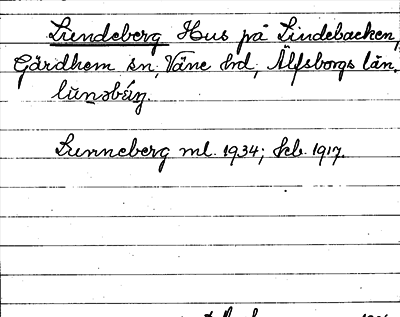 Lundeberg Hus på Lindebacken,
Gärdhem sn, Väne hd, Älfsborgs län.
Lunneberg ml. 1934; feb. 1917.